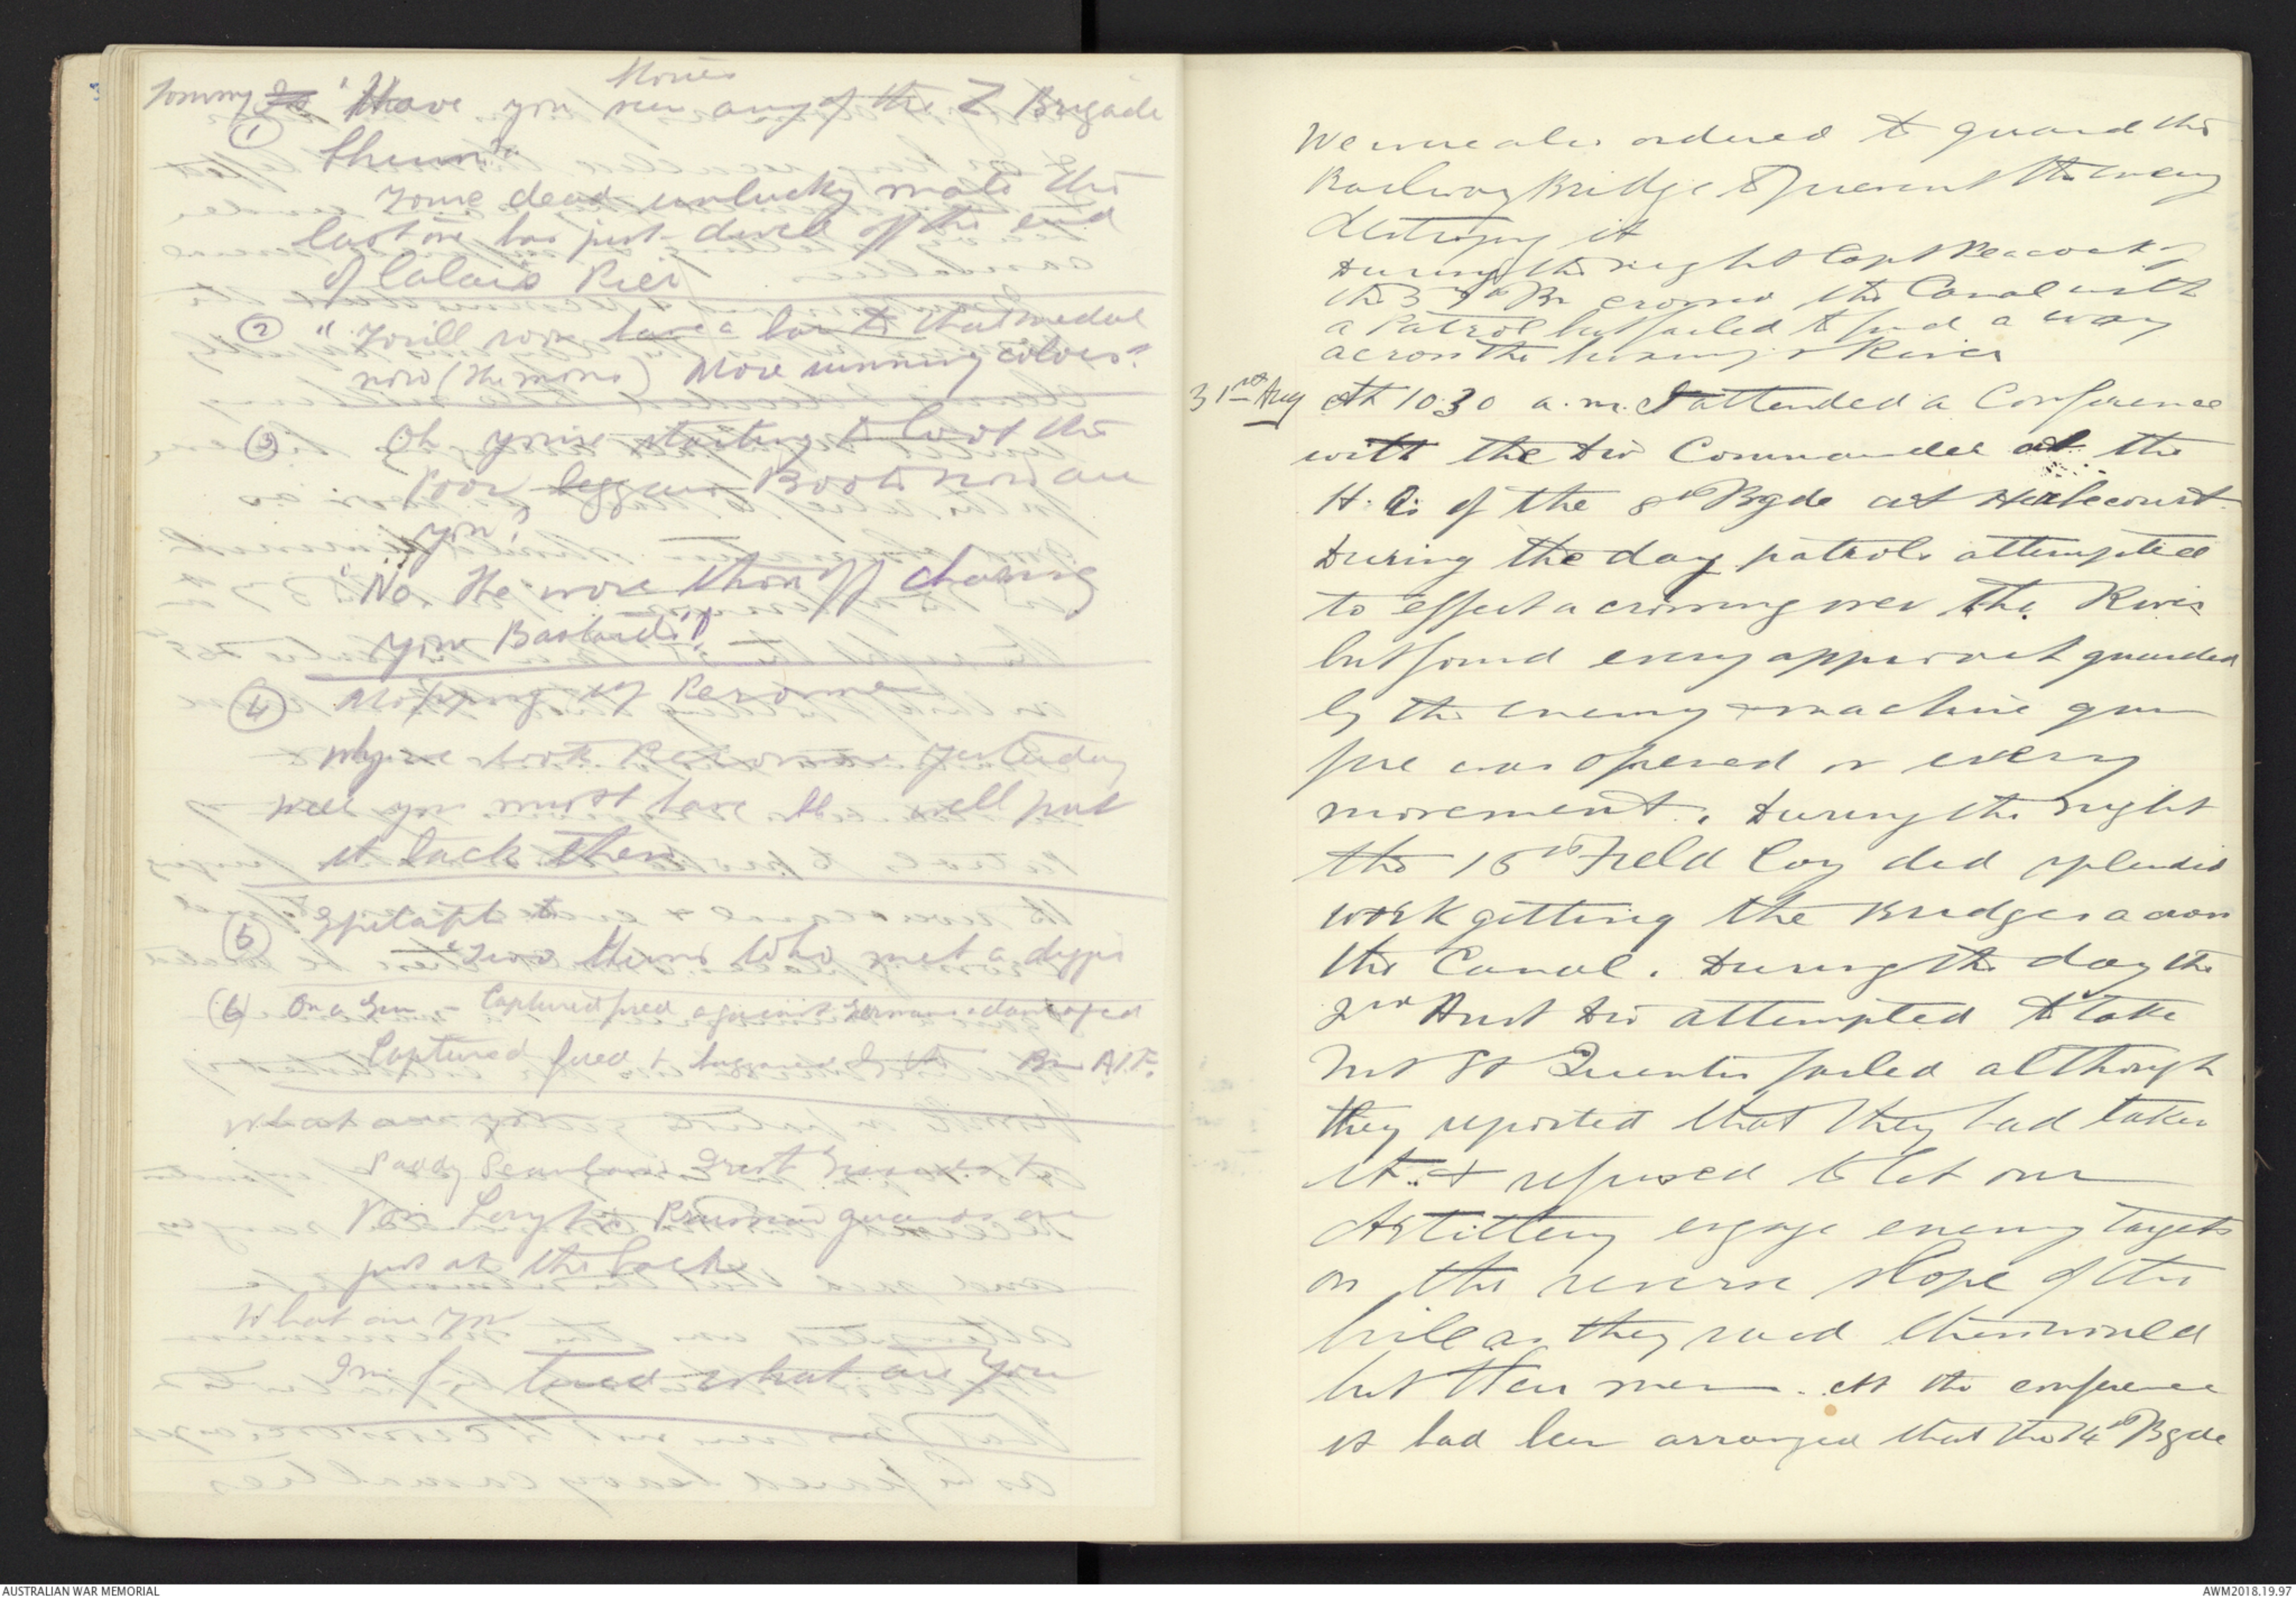 Stories
Tommy "Have you seen any of the Z Brigade
① Chum"
You're dead unlucky mate the
last one has just dived off the end
of Calais Pier
② "You'll soon have a bar to that medal
now (the mons) More running colours?
③ Oh you're starting to loot the
Poor beggars Boots now are
you?
"No He wore them off chasing
you Bastards"!
④ Mopping up Peronne
Why we took Peronne yesterday
Well you must have well put
it back then
⑤ Epitaph to
"Two Huns who met a digger
(6) On a Gun - Captured fired against Germans damaged
Captured fired & buggered by the Bn A.I.F.
What are you
Paddy
Von Prussian guards are
just at the back
What are you
I'm f tired what are you
We were also ordered to guard the
Railway Bridge & prevent the enemy
destroying it
During the night Capt Peacock of
the 57th Bn crossed the Canal with
a Patrol but failed to find a way
across the River
31st Aug At 10.30 a.m. I attended a Conference
with the Div Commander at the
H.Q. of the 8th Bgde at Herbecourt.
During the day patrols attempted
to effect a crossing over the River
but found every approach guarded
by the enemy & machine gun
fire was opened on every
movement. During the night
the 15th Field Coy did splendid
work getting the Bridges across
the Canal. During the day the
2nd Aust Div attempted to take
Mt St Quentin failed although
they reported that they had taken
it & refused to let our
Artillery engage enemy targets
on the reverse slope of the
hill as they said they would
hit their men. At the conference
it had been arranged that the 14th Bgde
AUSTRALIAN WAR MEMORIAL
AWM2018.19.97